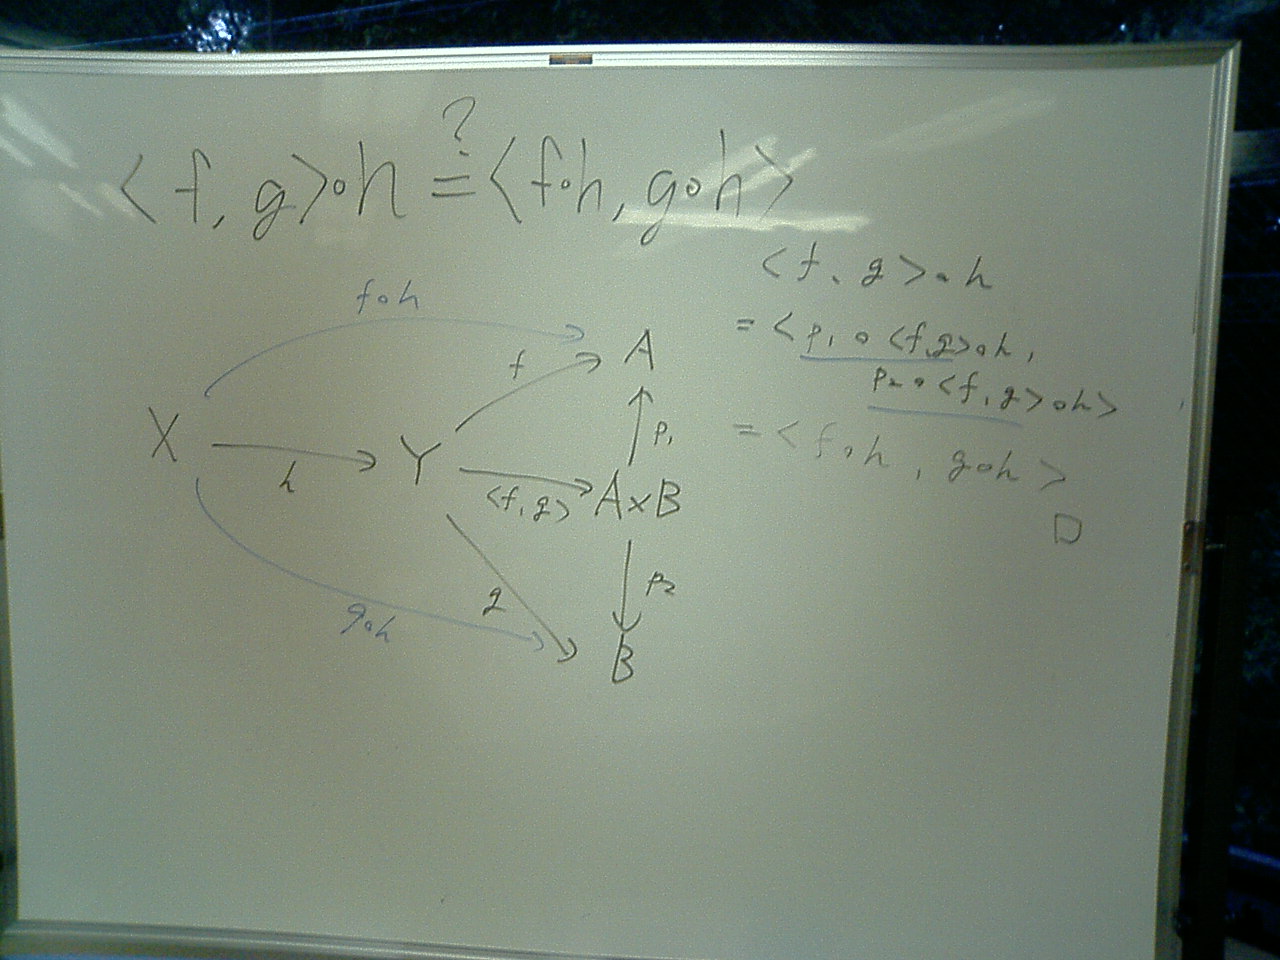 ?
<f, g>∘h = <f∘h, g∘h>
f∘h
f
A
X
h
Y
<f, g>
p₁
A×B
g
p₂
g∘h
B
<f, g>∘h
= <p₁∘<f,g>∘h,
p₂∘<f, g>∘h>
= <f∘h, g∘h>
□